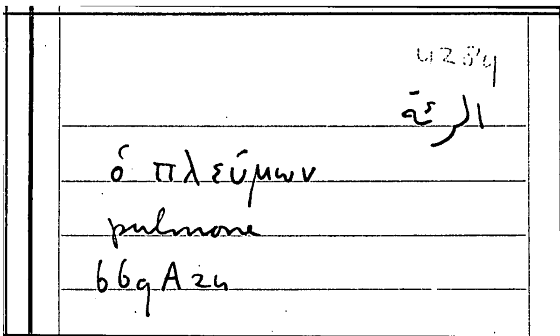 الرئة
ὁ πλεύμων
pulmone
669A24